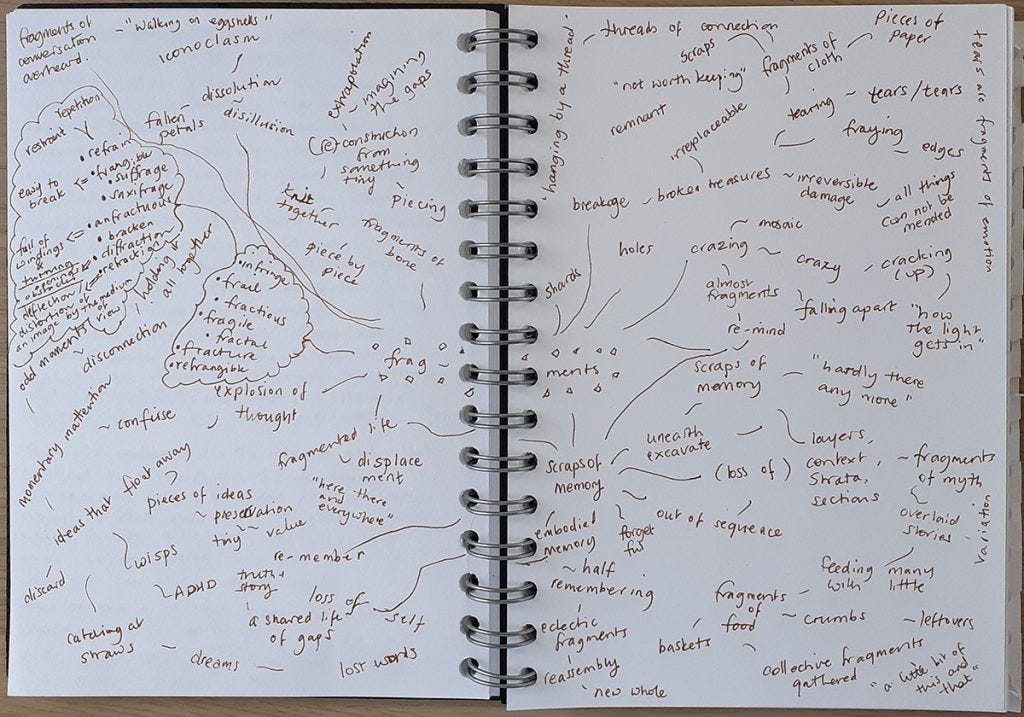 fragments of
conversation
overheard.
- "walking on eggshells"
iconoclasm
dissolution
disillusion
fallen
petals
repetition
restraint
• refrain
easy to
break <=
• frangible
• suffrage
• saxifrage
full of
windings
&
turning <=
• anfractuous
• bracken
• diffraction
deflection/ <=
• refraction
distortion of
an image by the medium
of view
holding it
all together
• infringe
• frail
• fractious
• fragile
• fractal
• fracture
• refrangible
extrapolation
~ imagining
the gaps
(re)construction
from
something
tiny
~ piecing
knit
together
piece by
piece
fragments of
bone
odd moments
~ disconnection
momentary mantion
explosion of
thought
~ confuse
frag ~
ments
fragmented life
displace
ment
"here there
and
everywhere"
ideas that float away
pieces of ideas
~ preservation
tiny ~ value
re-member
wisps
discard
ADHD
truth +
story
a shared life
of gaps
loss of
self
catching at
straws
~ dreams
lost words
'hanging by a thread'
threads of connection
scraps
"not worth keeping"
fragments of
cloth
Pieces of
paper
tears are fragments of emotion
remnant
irreplaceable
tearing ~ tears/tears
fraying
~ edges
breakage ~ broken treasures
~ irreversible
damage
~ all things
can not be
mended
shards
holes
~ mosaic
crazing ~
crazy
~ cracking
(up)
almost
fragments
falling apart
"how
the light
gets in"
re-mind
scraps of
memory
~ "hardly there
any more"
unearth
excavate
scraps of
memory
(loss of)
layers,
context,
strata,
sections
~ fragments
of myth
overlaid
stories
variation"
out of sequence
embodied
memory
forget
ful
~ half
remembering
eclectic
fragments
reassembly
'new whole
feeding many
with little
fragments
of
food
~ crumbs
~ leftovers
baskets
collective fragments
gathered
"a little bit of
this and
that"